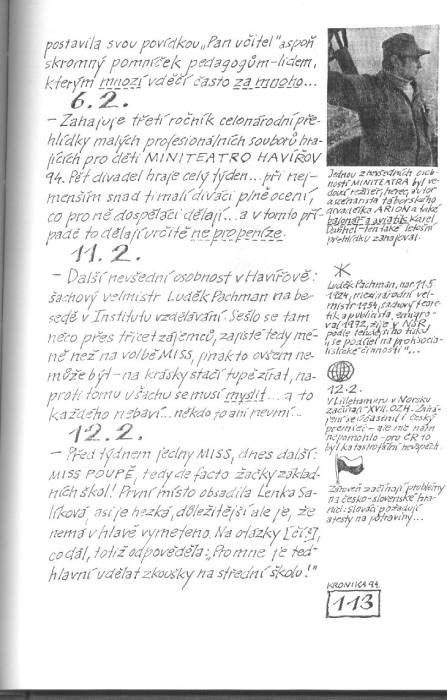 postavila svou povídkou „Pan učitel" aspoň
skromný pomníček pedagogům-lidem,
kterým mnozí vděčí často za mnoho...
6.2.
- Zahajuje třetí ročník celonárodní pře-
hlídky malých profesionálních souborů hra-
jících pro děti MINITEATRO HAVÍŘOV
94. Pět divadel hraje celý týden... při nej-
menším snad ti malí diváci plně ocení,
co pro ně dospěláci dělají... a v tomto pří-
padě to dělají určitě ne pro peníze.
11.2.
- Další nevšední osobnost v Havířově:
šachový velmistr Luděk Pachman na be-
sedě v Institutu vzdělávání. Sešlo se tam
něco přes třicet zájemců, zajisté tedy mé-
ně než na volbě MISS, jinak to ovšem ne-
může být - na krásky stačí tupě zírat, na-
proti tomu u šachu se musí myslit... a to
každého nebaví... někdo to ani neumí...
12.2.
- Před týdnem jedny MISS, dnes další:
MISS POUPĚ, tedy de facto žačky základ-
ních škol! První místo obsadila Lenka Sa-
líková, asi je hezká, důležitější ale je, že
nemá v hlavě vymeteno. Na otázky [čí?],
co dál, totiž odpověděla: „Pro mne je teď
hlavní udělat zkoušky na střední školu!"
Jednou z nevšedních osob-
ností MINITEATRA byl ve-
doucí režisér, herec, autor
a scénárista táborského
divadélka ARION a také
balonář a aviatik Karel
- ten také letošní
přehlídku zahajoval.
Luděk Pachman, nar. 11.5.
1924, mezinárodní vel-
mistr 1954, šachový teore-
tik a publicista, emigro-
val 1972, žije v NSR,
podle tehdejšího tisku
„se podílel na protisocia-
listické činnosti"...
12.2.
V Lillehameru v Norsku
začínají XVII. OZH. Zahá-
jení se účastnil i český
premiér - ale nic nám
nepomohlo - pro ČR to
byl katastrofální neúspěch.
Zároveň začínají problémy
na česko-slovenské hra-
nici: Slováci požadují
atesty na potraviny...
KRONIKA 94
113